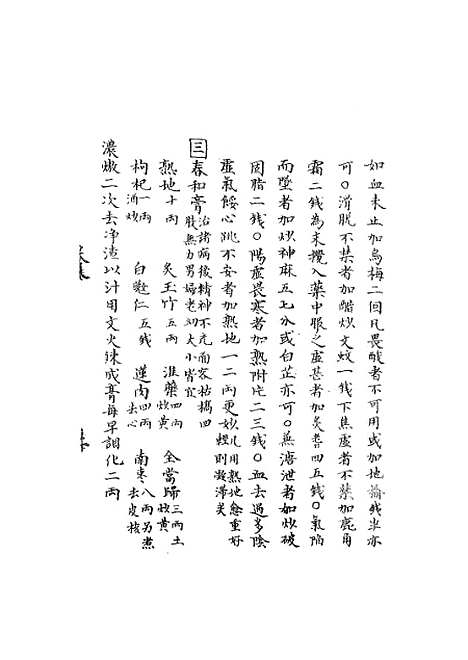 如血未止加烏梅二囘凡畏酸者不可用或加地榆錢半亦
可○滑脫不禁者加醋炒文蛤一錢下焦虛者不禁加鹿角
霜二錢為末攪入藥中服之虛甚者加炙耆四五錢○氣陷
而墜者加炒升麻五七分或白芷亦可○兼溏泄者加炒破
固脂二錢○陽虛畏寒者加熟附片二三錢○血去過多陰
虛氣餒心跳不安者加熟地一二兩更妙凡用熟地愈重好輕則凝滯矣
三 春和膏 治諸病後精神不充面容枯槁四肢無力男婦老幼大小皆宜
熟地十兩 炙玉竹五兩 淮藥四兩炒黃 全當歸三兩土炒黃
枸杞一兩酒炒 白蔻仁五錢 蓮肉四兩去心 南棗八兩另煮去皮核
濃燉二次去淨渣以汁用文火煉成膏每早調化二兩